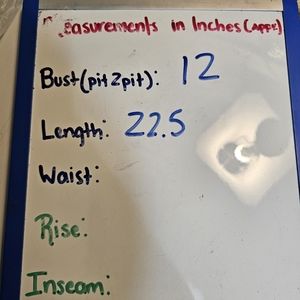 Measurements in Inches (APPX)
Bust (pit 2 pit): 12
Length: 22.5
Waist:
Rise:
Inseam: